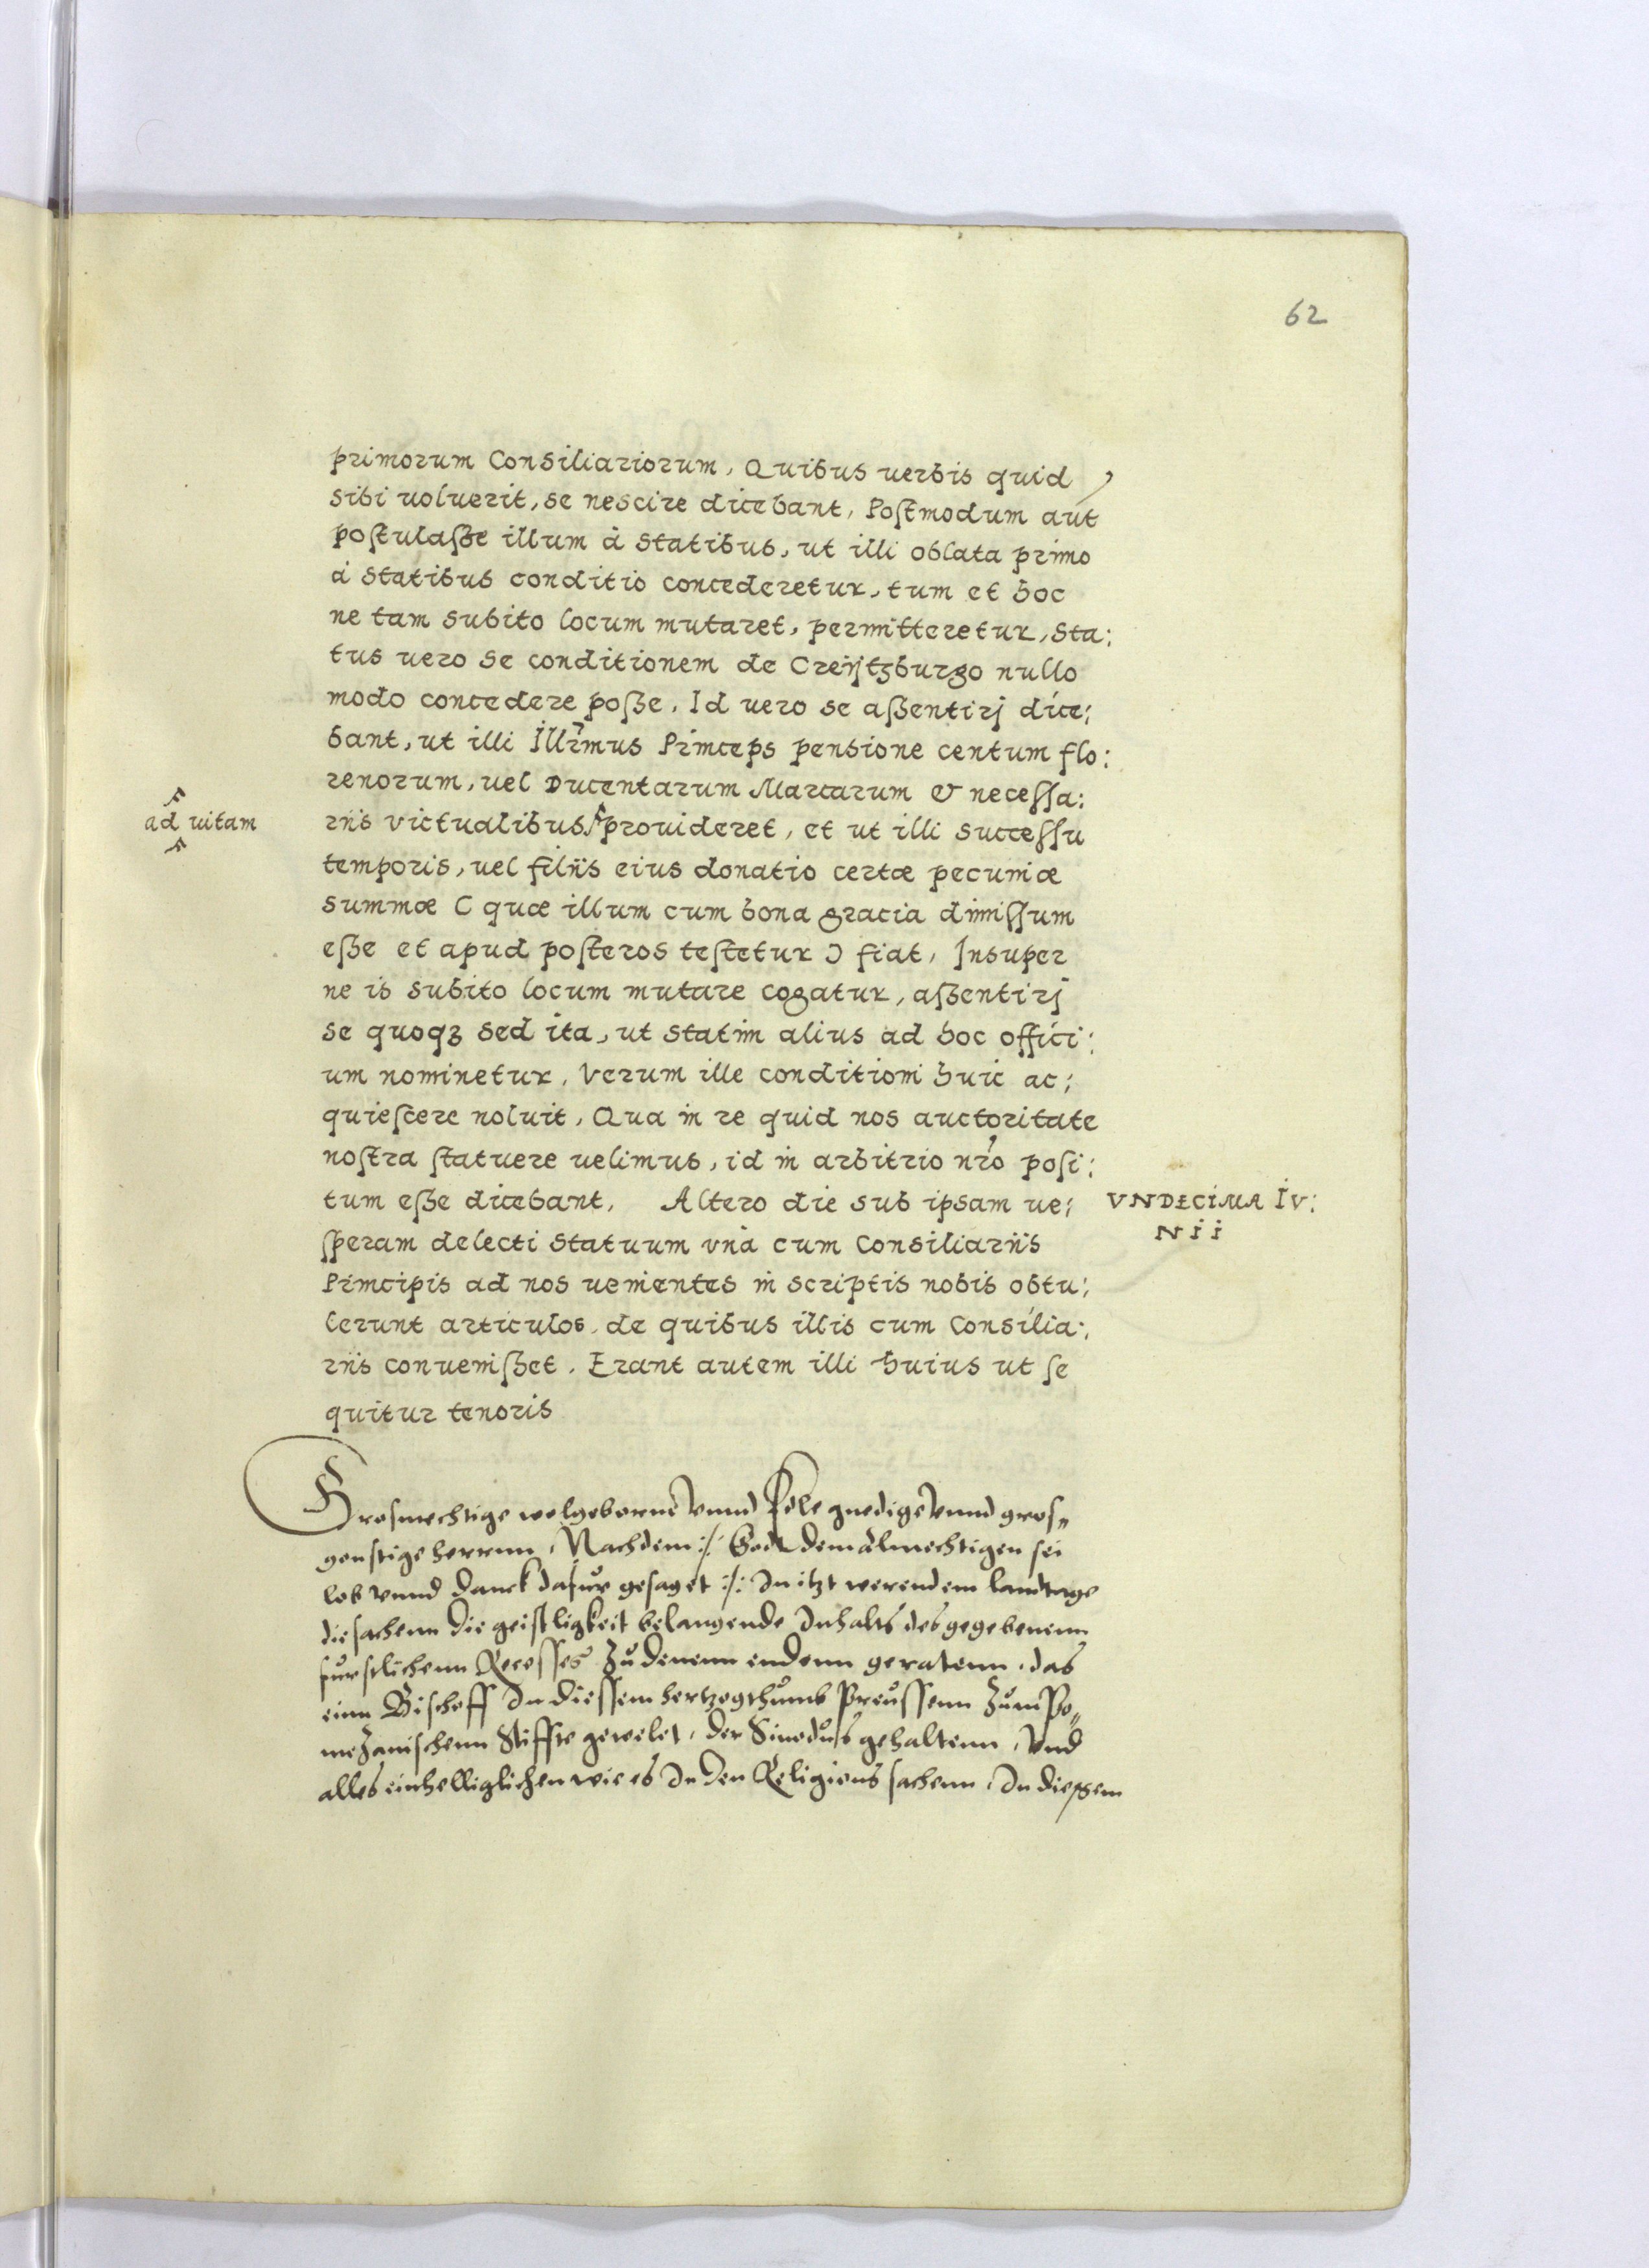 62
primorum Consiliariorum, Quibus uerbis quid
sibi uoluerit, se nescire dicebant, Postmodum aut
postulaße illum à statibus, ut illi oblata primo
à statibus conditio concederetur, tum et hoc
ne tam subito locum mutaret, permitteretur, Sta:
tus uero se conditionem de Creijtzburgo nullo
modo concedere poße. Id uero se aßentirj dice:
bant, ut illi Illr̃mus Princeps pensione centum flo:
renorum, uel Ducentarum Marcarum & necessa:
ad uitam
riis victualibus prouideret, et ut illi successu
temporis, uel filiis eius donatio certæ pecuniæ
summæ C quæ illum cum bona gracia dimissum
eße et apud posteros testetur Ɔ fiat, Insuper
ne is subito locum mutare cogatur, aßentirj
se quoqȝ sed ita, ut statim alius ad hoc offici:
um nominetur. Verum ille conditioni huic ac:
quiescere noluit, Qua in re quid nos auctoritate
nostra statuere uelimus, id in arbitrio nr̃o posi:
tum eße dicebant, Altero die sub ipsam ue:
VNDECIMA IV:
NII
speram delecti statuum vnà cum Consiliariis
Principis ad nos uenientes in scriptis nobis obtu:
lerunt articulos, de quibus illis cum Consilia:
riis conuenißet. Erant autem illi huius ut se
quitur tenoris
Grosmechtige wolgeborne vnnd Edle gnedige vnnd gros„
gonstige herrnn, Nachdem :/: Gott dem almechtigen sei
lob vnnd danck dafur gesaget :/: In itzt werendem landtage
die sachenn die geistligkeit belangende Inhalts des gegebenenn
furstlichenn Recesses zu denenn endenn geratenn, das
einn Bischoff In diessem hertzogthumb Preussenn zum Po„
mezanischenn Stiffte gewelet, der Sinodus gehaltenn, vnd
alles einhelliglichen wie es In den Religions sachenn, In dießem